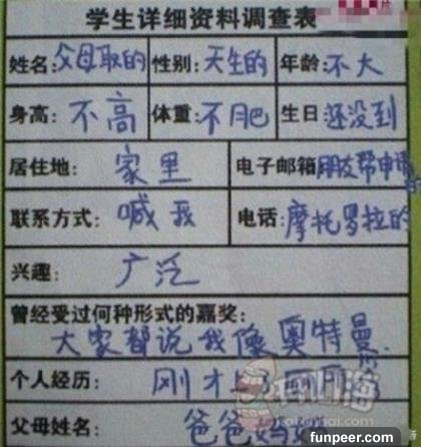 学生详细资料调查表
姓名:父母取的 性别:天生的 年龄:不大
身高:不高 体重:不肥 生日:还没到
居住地:家里 电子邮箱:朋友帮申请的
联系方式:喊我 电话:摩托罗拉的
兴趣:广泛
曾经受过何种形式的嘉奖:
大家都说我像奥特曼.
个人经历:刚才上
父母姓名:爸爸妈妈
funpeer.com